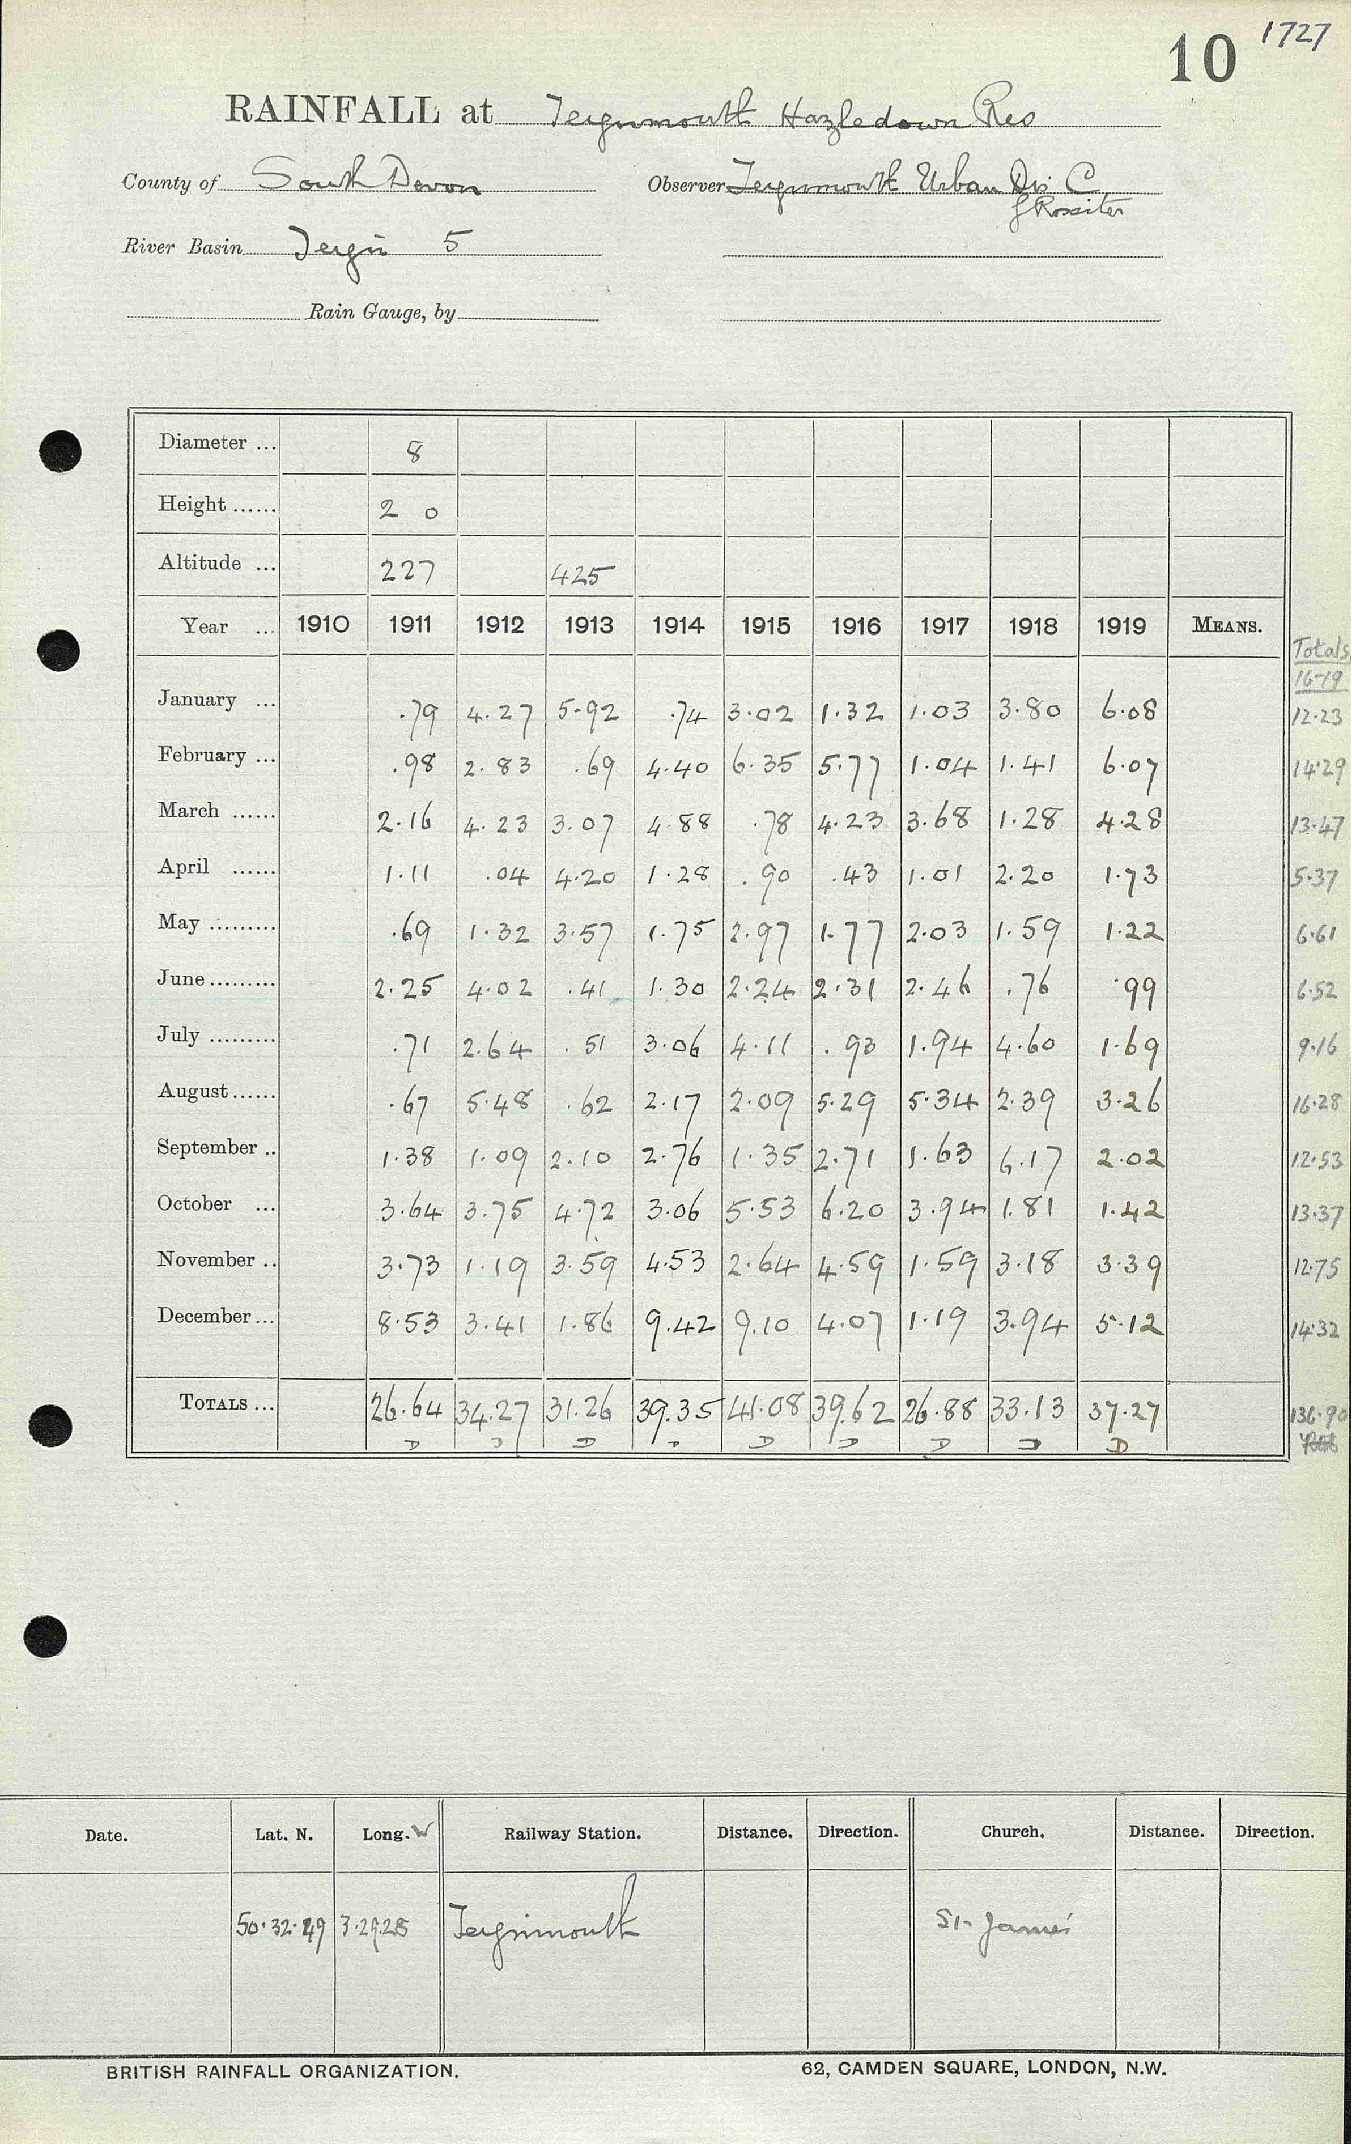 10 1727
RAINFALL at Teignmouth Hazledown Res
County of South Devon Observer Teignmouth Urban Dis C
J Rossiter
River Basin Teign 5
Rain Gauge, by
Diameter ... 8
Height ...... 2 0
Altitude ... 227 425
Year ... 1910 1911 1912 1913 1914 1915 1916 1917 1918 1919 MEANS. Totals
16-19
January ... .79 4.27 5.92 .74 3.02 1.32 1.03 3.80 6.08 12.23
February ... .98 2.83 .69 4.40 6.35 5.77 1.04 1.41 6.07 14.29
March ...... 2.16 4.23 3.07 4.88 .78 4.23 3.68 1.28 4.28 13.47
April ...... 1.11 .04 4.20 1.28 .90 .43 1.01 2.20 1.73 5.37
May ......... .69 1.32 3.57 1.75 2.97 1.77 2.03 1.59 1.22 6.61
June ......... 2.25 4.02 .41 1.30 2.24 2.31 2.46 .76 .99 6.52
July ......... .71 2.64 .51 3.06 4.11 .93 1.94 4.60 1.69 9.16
August ...... .67 5.48 .62 2.17 2.09 5.29 5.34 2.39 3.26 16.28
September .. 1.38 1.09 2.10 2.76 1.35 2.71 1.63 6.17 2.02 12.53
October ... 3.64 3.75 4.72 3.06 5.53 6.20 3.94 1.81 1.42 13.37
November .. 3.73 1.19 3.59 4.53 2.64 4.59 1.59 3.18 3.39 12.75
December ... 8.53 3.41 1.86 9.42 9.10 4.07 1.19 3.94 5.12 14.32
TOTALS ... 26.64 34.27 31.26 39.35 41.08 39.62 26.88 33.13 37.27 136.90
D D D D D D D D D
Date. Lat. N. Long. W Railway Station. Distance. Direction. Church. Distance. Direction.
50.32.49 3.29.28 Teignmouth St. James
BRITISH RAINFALL ORGANIZATION. 62, CAMDEN SQUARE, LONDON, N.W.